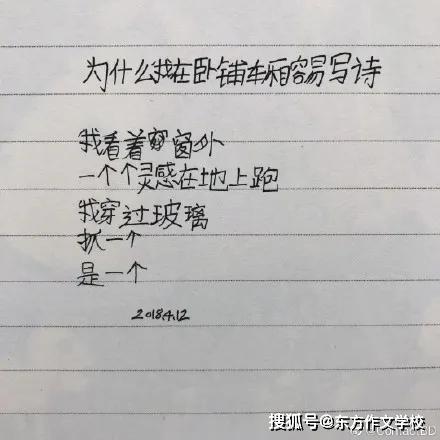 为什么我在卧铺车厢容易写诗
我看着窗窗外
一个个灵感在地上跑
我穿过玻璃
抓一个
是一个
2018.4.12
搜狐号@东方作文学校